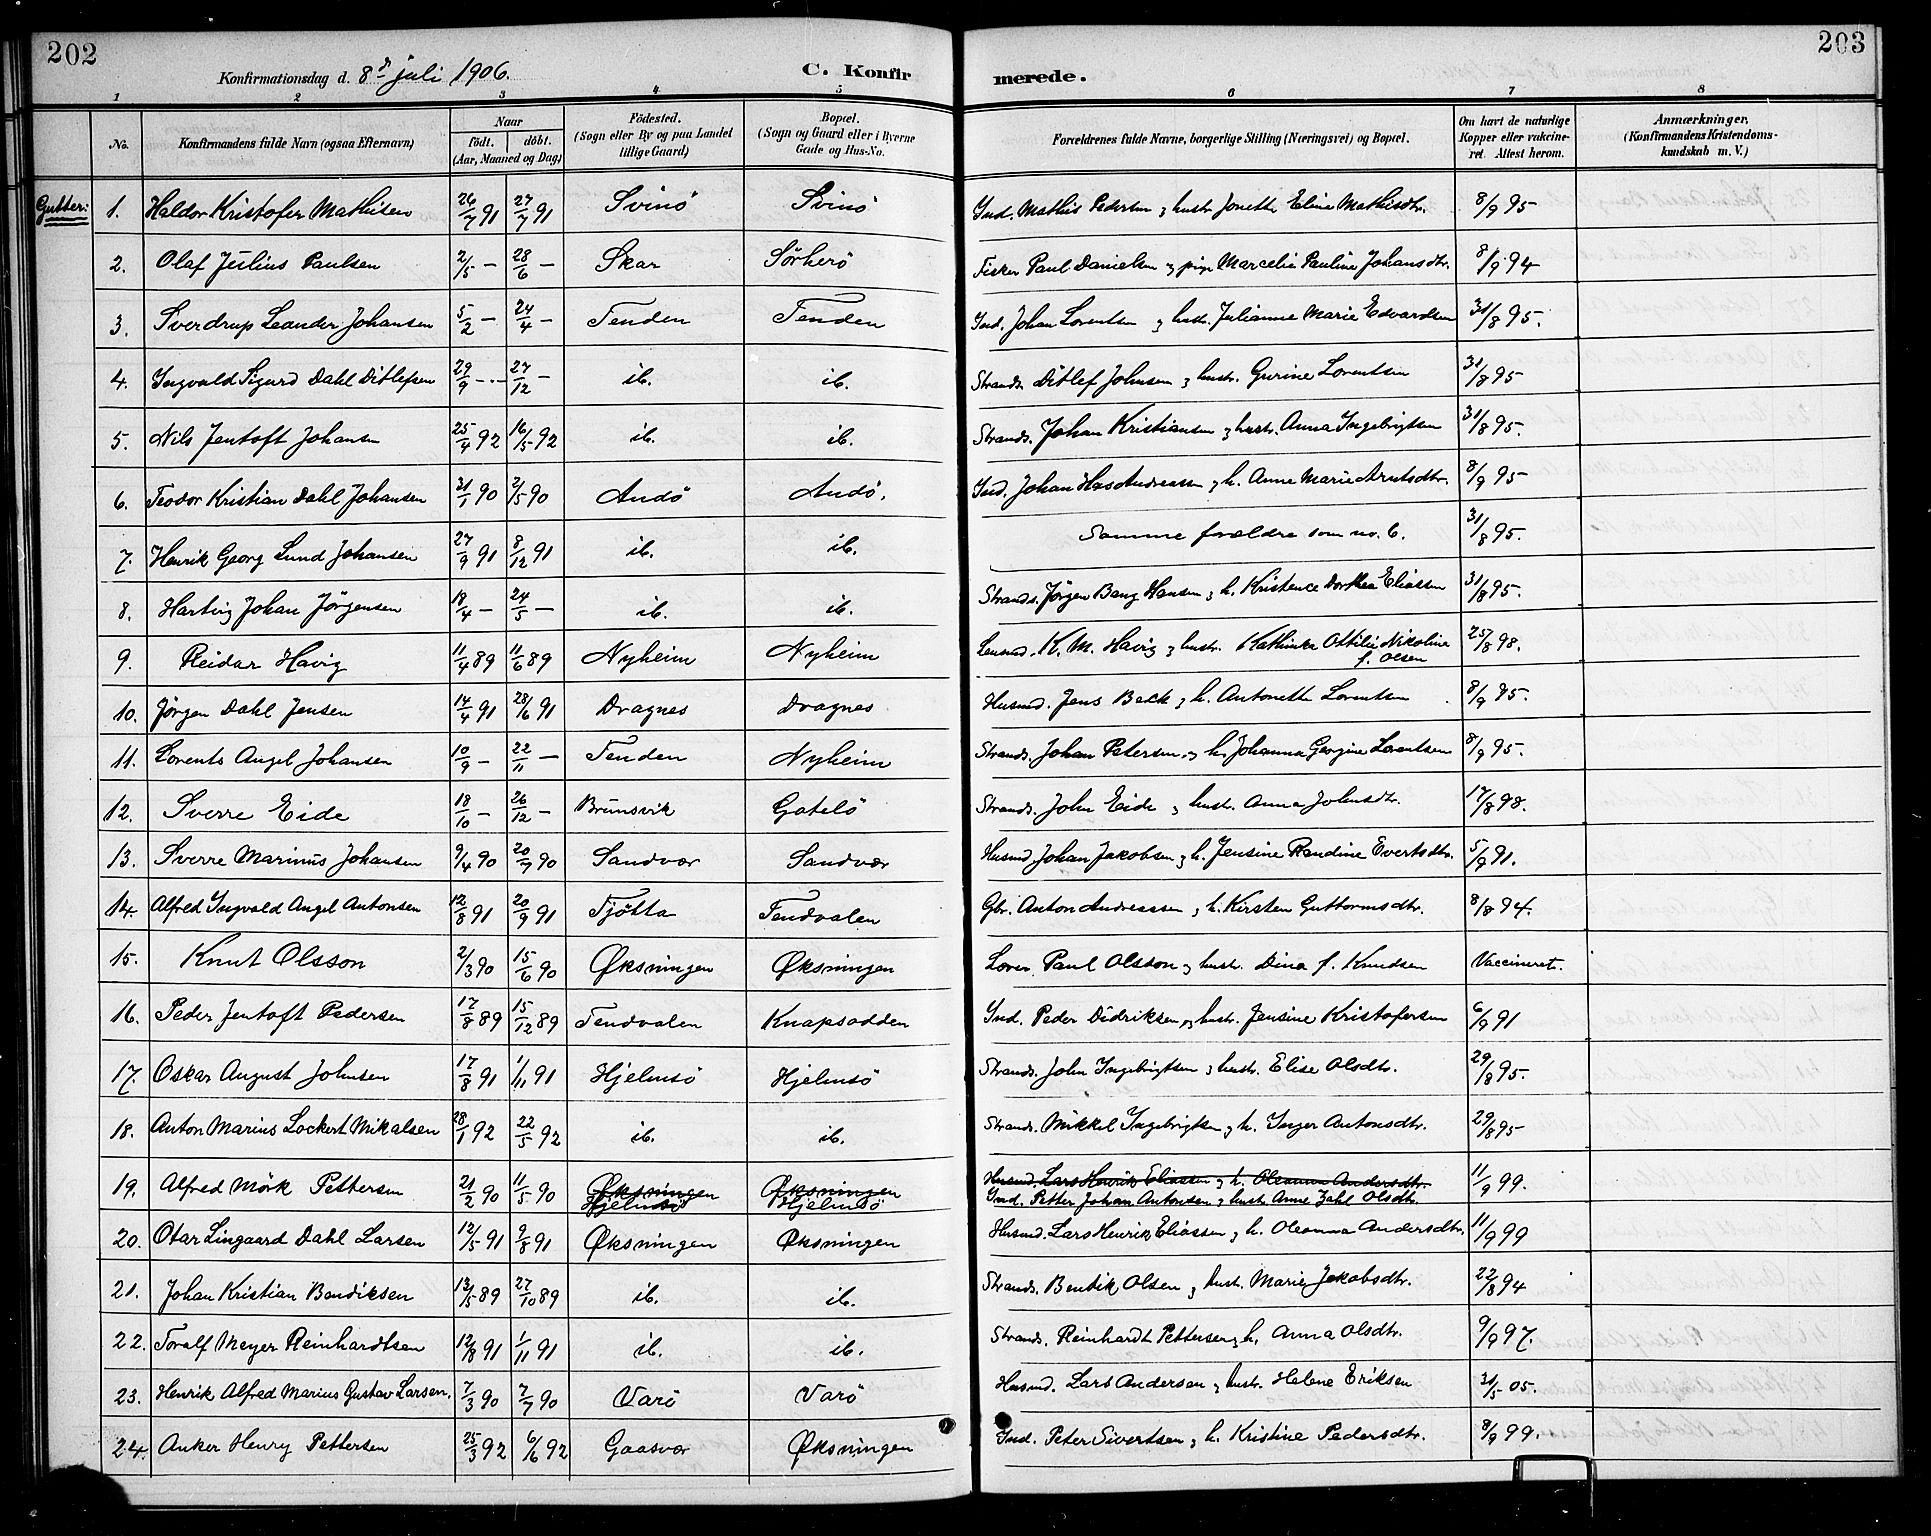 202
203
Konfirmationsdag d. 8de juli 1906.
C. Konfirmerede.
1 2 3 4 5 6 7 8
No.
Konfirmandens fulde Navn (ogsaa Efternavn)
Naar
födt. döbt.
(Aar, Maaned og Dag)
Födested.
(Sogn eller By og paa Landet
tillige Gaard)
Bopæl.
(Sogn og Gaard eller i Byerne
Gade og Hus-No.
Forældrenes fulde Navne, borgerlige Stilling (Næringsvei) og Bopæl.
Om havt de naturlige
Kopper eller vaccine-
ret. Attest herom.
Anmærkninger,
(Konfirmandens Kristendoms-
kundskab m. V.)
Gutter:
1. Haldor Kristofer Mathisen 26/7 91 27/7 91 Svinö Svinö Ind. Mathis Pedersen og hustr. Jonette Eline Mathisdtr. 8/9 95
2. Olaf Julius Paulsen 2/5 — 28/6 — Skar Sörherö Fisker Paul Danielsen og pige Marcelie Pauline Johansdtr. 8/9 94
3. Sverdrup Leander Johansen 5/2 — 24/4 — Tenden Tenden Ind. Johan Lorentsen og hustr. Julianne Marie Edvardsen 31/8 95.
4. Ingvald Sigurd Dahl Ditlefsen 29/9 — 27/12 — ib. ib. Strands. Ditlef Johnsen og hustr. Gurine Lorentsen 31/8 95
5. Nils Jentoft Johansen 25/4 92 16/5 92 ib. ib. Strands. Johan Kristiansen og hustr. Anna Ingebrigtsen 31/8 95.
6. Teodor Kristian Dahl Johansen 31/1 90 2/5 90 Andö Andö. Ind. Johan Andreassen og h. Anne Marie Arntsdtr. 8/9 95
7. Henrik Georg Lund Johansen 27/9 91 8/12 91 ib. ib. Samme forældre som no. 6. 31/8 95.
8. Hartvig Johan Jörgensen 18/4 — 24/5 — ib. ib. Strands. Jörgen Bang Hansen og h. Kristence Dorthea Eliassen 31/8 95.
9. Reidar Havig 11/4 89 11/6 89 Nyheim Nyheim Lensmd. K. M. Havig og hustr. Kathinka Ottilie Nikoline 25/8 98.
f. Olsen
10. Jörgen Dahl Jensen 14/4 91 28/6 91 Dragnes Dragnes Husmd. Jens Beck og h. Antonette Lorentsen 8/9 95
11. Lorents Angel Johansen 10/9 — 22/11 — Tenden Nyheim Strands. Johan Petersen og h. Johanna Georgine Lorentsen 8/9 95.
12. Sverre Eide 18/10 — 26/12 — Brunsvik Gotelö Strands. John Eide og hustr. Anna Johnsdtr. 17/8 98.
13. Sverre Marinus Johansen 9/4 90 20/7 90 Sandvær Sandvær Husmd. Johan Jakobsen og h. Jensine Randine Evertsdtr. 5/9 91.
14. Alfred Ingvald Angel Antonsen 12/8 91 20/9 91 Tjötta Tendvalen Gbr. Anton Andreassen og h. Kirsten Guttormsdtr. 8/8 94.
15. Knut Olsson 2/3 90 15/6 90 Øksningen Øksningen Paul Olsson og hustr. Dina f. Knudsen Vaccineret.
16. Peder Jentoft Pedersen 17/8 89 15/12 89 Tendvalen Knapsodden Ind. Peder Didriksen og hustr. Jensine Kristofersen 6/9 91
17. Oskar August Johnsen 17/8 91 1/11 91 Hjelmsö Hjelmsö Strands. John Ingebrigtsen og hustr. Elise Olsdtr. 29/8 95.
18. Anton Marius Lockert Mikalsen 28/1 92 22/5 92 ib. ib. Strands. Mikkel Ingebrigtsen og h. Inger Antonsdtr. 29/8 95
19. Alfred Mörk Pettersen 21/2 90 11/5 90 Øksningen Øksningen Husmd. Lars Henrik Eliassen og h. Oleanna Andersdtr. 11/9 99.
Hjelmsö Hjelmsö Ind. Petter Johan Antonsen og hustr. Anne Zahl Olsdtr.
20. Otar Lingaard Dahl Larsen 12/5 91 9/8 91 Øksningen Øksningen Husmd. Lars Henrik Eliassen og h. Oleanna Andersdtr. 11/9 99
21. Johan Kristian Bendiksen 13/5 89 27/10 89 ib. ib. Strands. Bendik Olsen og hustr. Marie Jakobsdtr. 22/8 94
22. Toralf Meyer Reinhardtsen 12/8 91 1/11 91 ib. ib. Strands. Reinhardt Pettersen og h. Anna Olsdtr. 9/9 97.
23. Henrik Alfred Marius Gustav Larsen. 7/3 90 7/7 90 Varö Varö Husmd. Lars Andersen og hustr. Helene Eriksen 31/5 05.
24. Anker Henry Pettersen 25/3 92 6/6 92 Gaasvær Øksningen Ind. Peter Sivertsen og h. Kristine Pedersdtr. 8/9 99.